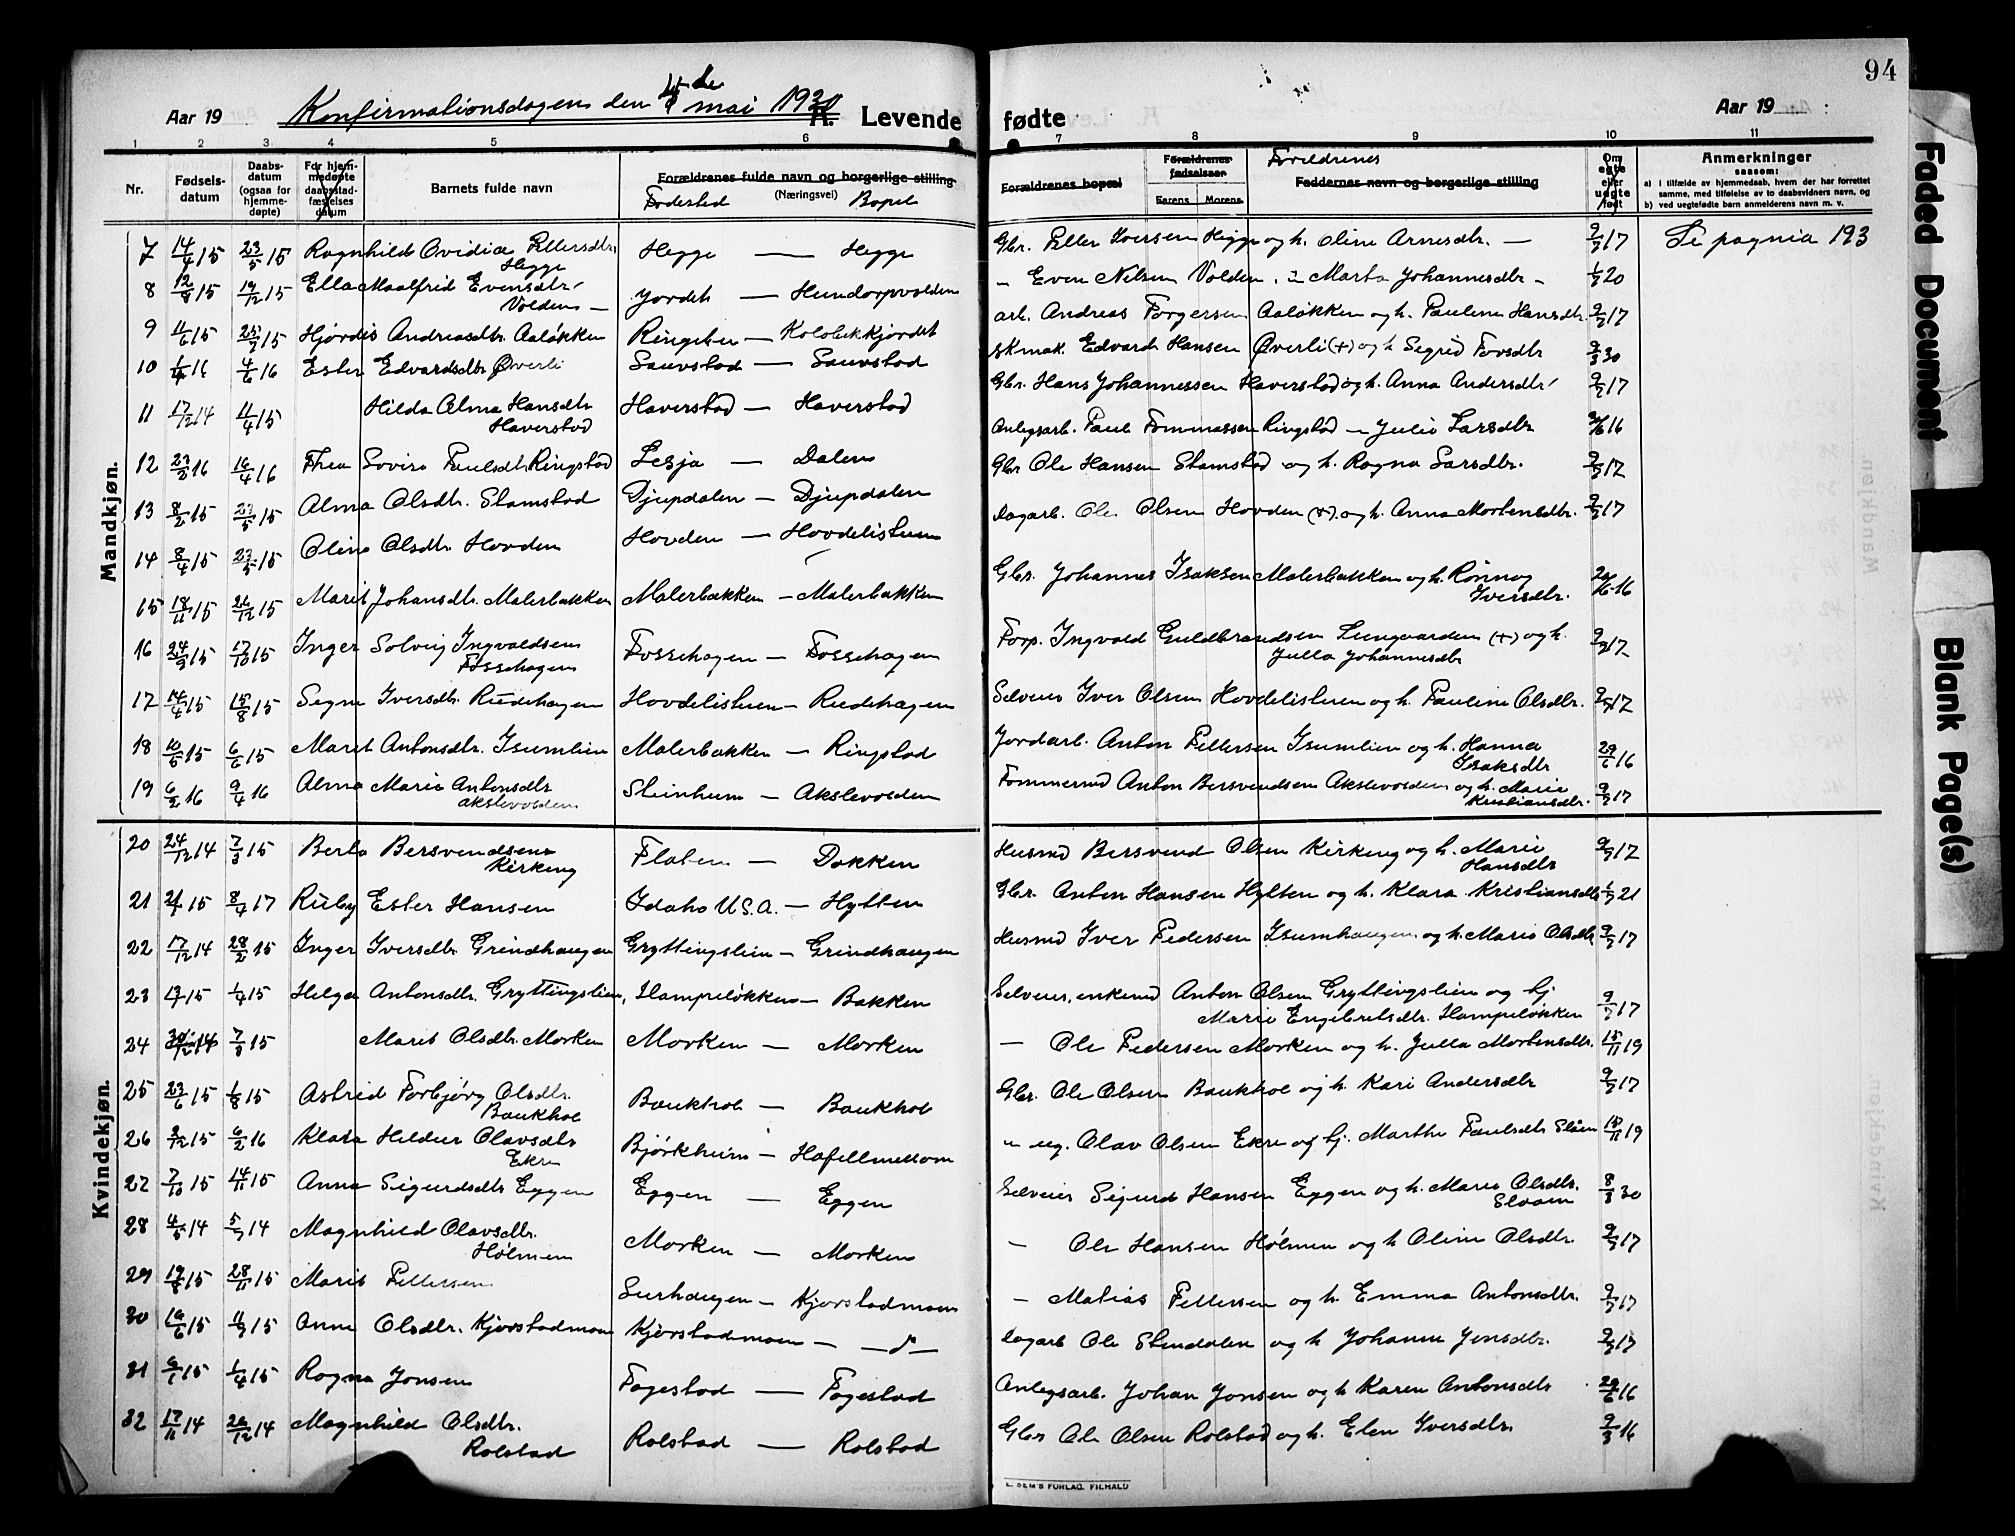 94
Aar 19
Konfirmationsdagen den 4de mai 1930
A. Levende fødte
Aar 19
1 2 3 4 5 6 7 8 9 10 11
Nr.
Fødsels-
datum
Daabs-
datum
(ogsaa for
hjemme-
døpte)
For hjem-
medøpte
daabsstad-
fæstelses
datum
Barnets fulde navn
Forældrenes fulde navn og borgerlige stilling
(Næringsvei)
Fødested Bopel
Forældrenes bopæl
Forældrenes
fødselsaar
Farens Morens
Foreldrenes
Faddernes navn og borgerlige stilling
Om
egte
eller
uegte
født
Anmerkninger
saasom:
a) i tilfælde av hjemmedaab, hvem der har forrettet
samme, med tilføielse av to daabsvidners navn, og
b) ved uegtefødte barn anmelderens navn m. v.
Mandkjøn.
7 14/4 15 23/5 15 Ragnhild Ovidia Pettersdtr. Hegge Hegge — Hegge Gbr. Petter Iversen Hegge og h. Oline Arnesdtr. — 9/7 17 Se pagina 193
8 12/8 15 19/12 15 Ella Maalfrid Evensdtr. Volden — Jordet — Hundorpvolden " Even Nilsen Volden " Marta Johannesdtr - 20
9 15 15 Hjördis Andreasdtr. Aaløkken Ringebu — Kolobekkjordet arb. Andreas Torgersen Aaløkken og h. Pauline Hansdtr. 9/7 17
10 16 4/6 16 Ester Edvardsdtr Øverli Sauvstad — Sauvstad skmak. Edvard Hansen Øverli (+) og h Segrid Torsdtr 30
11 17/12 14 11/4 15 Hilda Alma Hansdtr Haverstad Haverstad — Haverstad Gbr. Hans Johannessen Haverstad og h. Anna Andersdtr 9/7 17
12 23/2 16 16/4 16 Thea Sovire Paulsdtr. Ringstad Lesja — Dalen Anlegsarb. Paul Tommassen Ringstad — Julie Larsdtr 16
13 8/2 15 23/5 15 Alma Olsdtr. Stamstad Djupdalen — Djupdalen Gbr Ole Hansen Stamstad og h. Ragna Larsdtr. 9/7 17
14 8/4 15 23/5 15 Oline Olsdtr Hovden Hovden — Hovdelistuen Dagarb. Ole Olsen Hovden (+) og h. Anna Mortensdtr. 9/7 17
15 18/11 15 26/12 15 Marit Johansdtr. Malerbakken Malerbakken — Malerbakken Gbr. Johannes Isaksen Malerbakken og h. Rønnog Iversdtr. 16
16 24/9 15 17/10 15 Inger Solveig Ingvaldsen Fossehagen Fossehagen — Fossehagen Forp. Ingvald Guldbrandsen Lungaarden (+) og h. Julla Johannesdtr 9/7 17
17 14/4 15 15/8 15 Signe Iversdtr. Rudehagen Hovdelistuen — Rudehagen Selveier Iver Olsen Hovdelistuen og h. Pauline Olsdtr. 9/7 17
18 10/5 15 6/6 15 Marit Antonsdtr. Isumlien Malerbakken — Ringstad Jordarb. Anton Pettersen Isumlien og h. Hanna Isaksdtr 29/6 16
19 6/2 16 9/4 16 Alma Marie Antonsdtr Akslevolden Steinhum — Akslevolden Tømmermd Anton Bersvendsen Akslevolden og h. Marie Kristiansdtr. 9/7 17
Kvindekjøn.
20 24/12 14 7/3 15 Berta Bersvendsen Kirkeng Flaten — Dokken Husmd Bersvend Olsen Kirkeng og h. Marie Hansdtr 9/7 17
21 15 8/4 17 Ruby Ester Hansen Idaho U.S.A. — Hytten Gbr. Anton Hansen Hytten og h. Klara Kristiansdtr 21
22 17/12 14 28/2 15 Inger Iversdtr. Grindhaugen Gryttingslien — Grindhaugen Husmd Iver Pedersen Isumhaugen og h. Marie Olsdtr 9/7 17
23 15 1/4 15 Helga Antonsdtr. Gryttingslien, Hampeløkken — Bakken Selveier, enkemd Anton Olsen Gryttingslien og pj Marie Engebretsdtr. Hampeløkken 9/7 17
24 14 7/3 15 Marit Olsdtr. Morken Morken — Morken — Ole Pedersen Morken og h. Julla Mortensdtr. 15/11 19
25 23/6 15 1/8 15 Astrid Torbjørg Olsdtr. Baukhol Baukhol — Baukhol Gbr. Ole Olsen Baukhol og h. Kari Andersdtr 9/7 17
26 15 6/2 16 Klara Hildur Olavsdtr Ekre Bjørkheim — Hafellmellom " ug. Olav Olsen Ekre og pj. Marthe Paulsdtr Slåen 15/11 19
27 7/10 15 14/11 15 Anna Sigurdsdtr Eggen Eggen — Eggen Selveier Sigurd Hansen Eggen og h. Marie Olsdtr. Sloaen 8/3 30
28 4/5 14 5/7 14 Magnhild Olavsdtr. Hólmen Morken — Morken — Ole Hansen Hólmen og h Oline Olsdtr. 9/7 17
29 19/8 15 28/11 15 Marit Pettersen Surhaugen — Kjorstadmoen — Matias Pettersen og h. Emma Antonsdtr. 9/7 17
30 16/6 15 11/7 15 Anne Olsdtr. Kjorstadmoen Kjörstadmoen — —"— Dagarb Ole Stendalen og h Johanne Jonsdtr. 9/7 17
31 15 1/4 15 Ragna Jonsen Fagestad — Fagestad Anlegsarb. Johan Jonsen og h Karen Antonsdtr 29/6 16
32 17/11 14 26/12 14 Magnhild Olsdtr. Rolstad Rolstad — Rolstad Gbr Ole Olsen Rolstad og h. Elen Iversdtr. 9/3 16
L. SEM'S FORLAG, F.HALD
Faded Document
Blank Page(s)